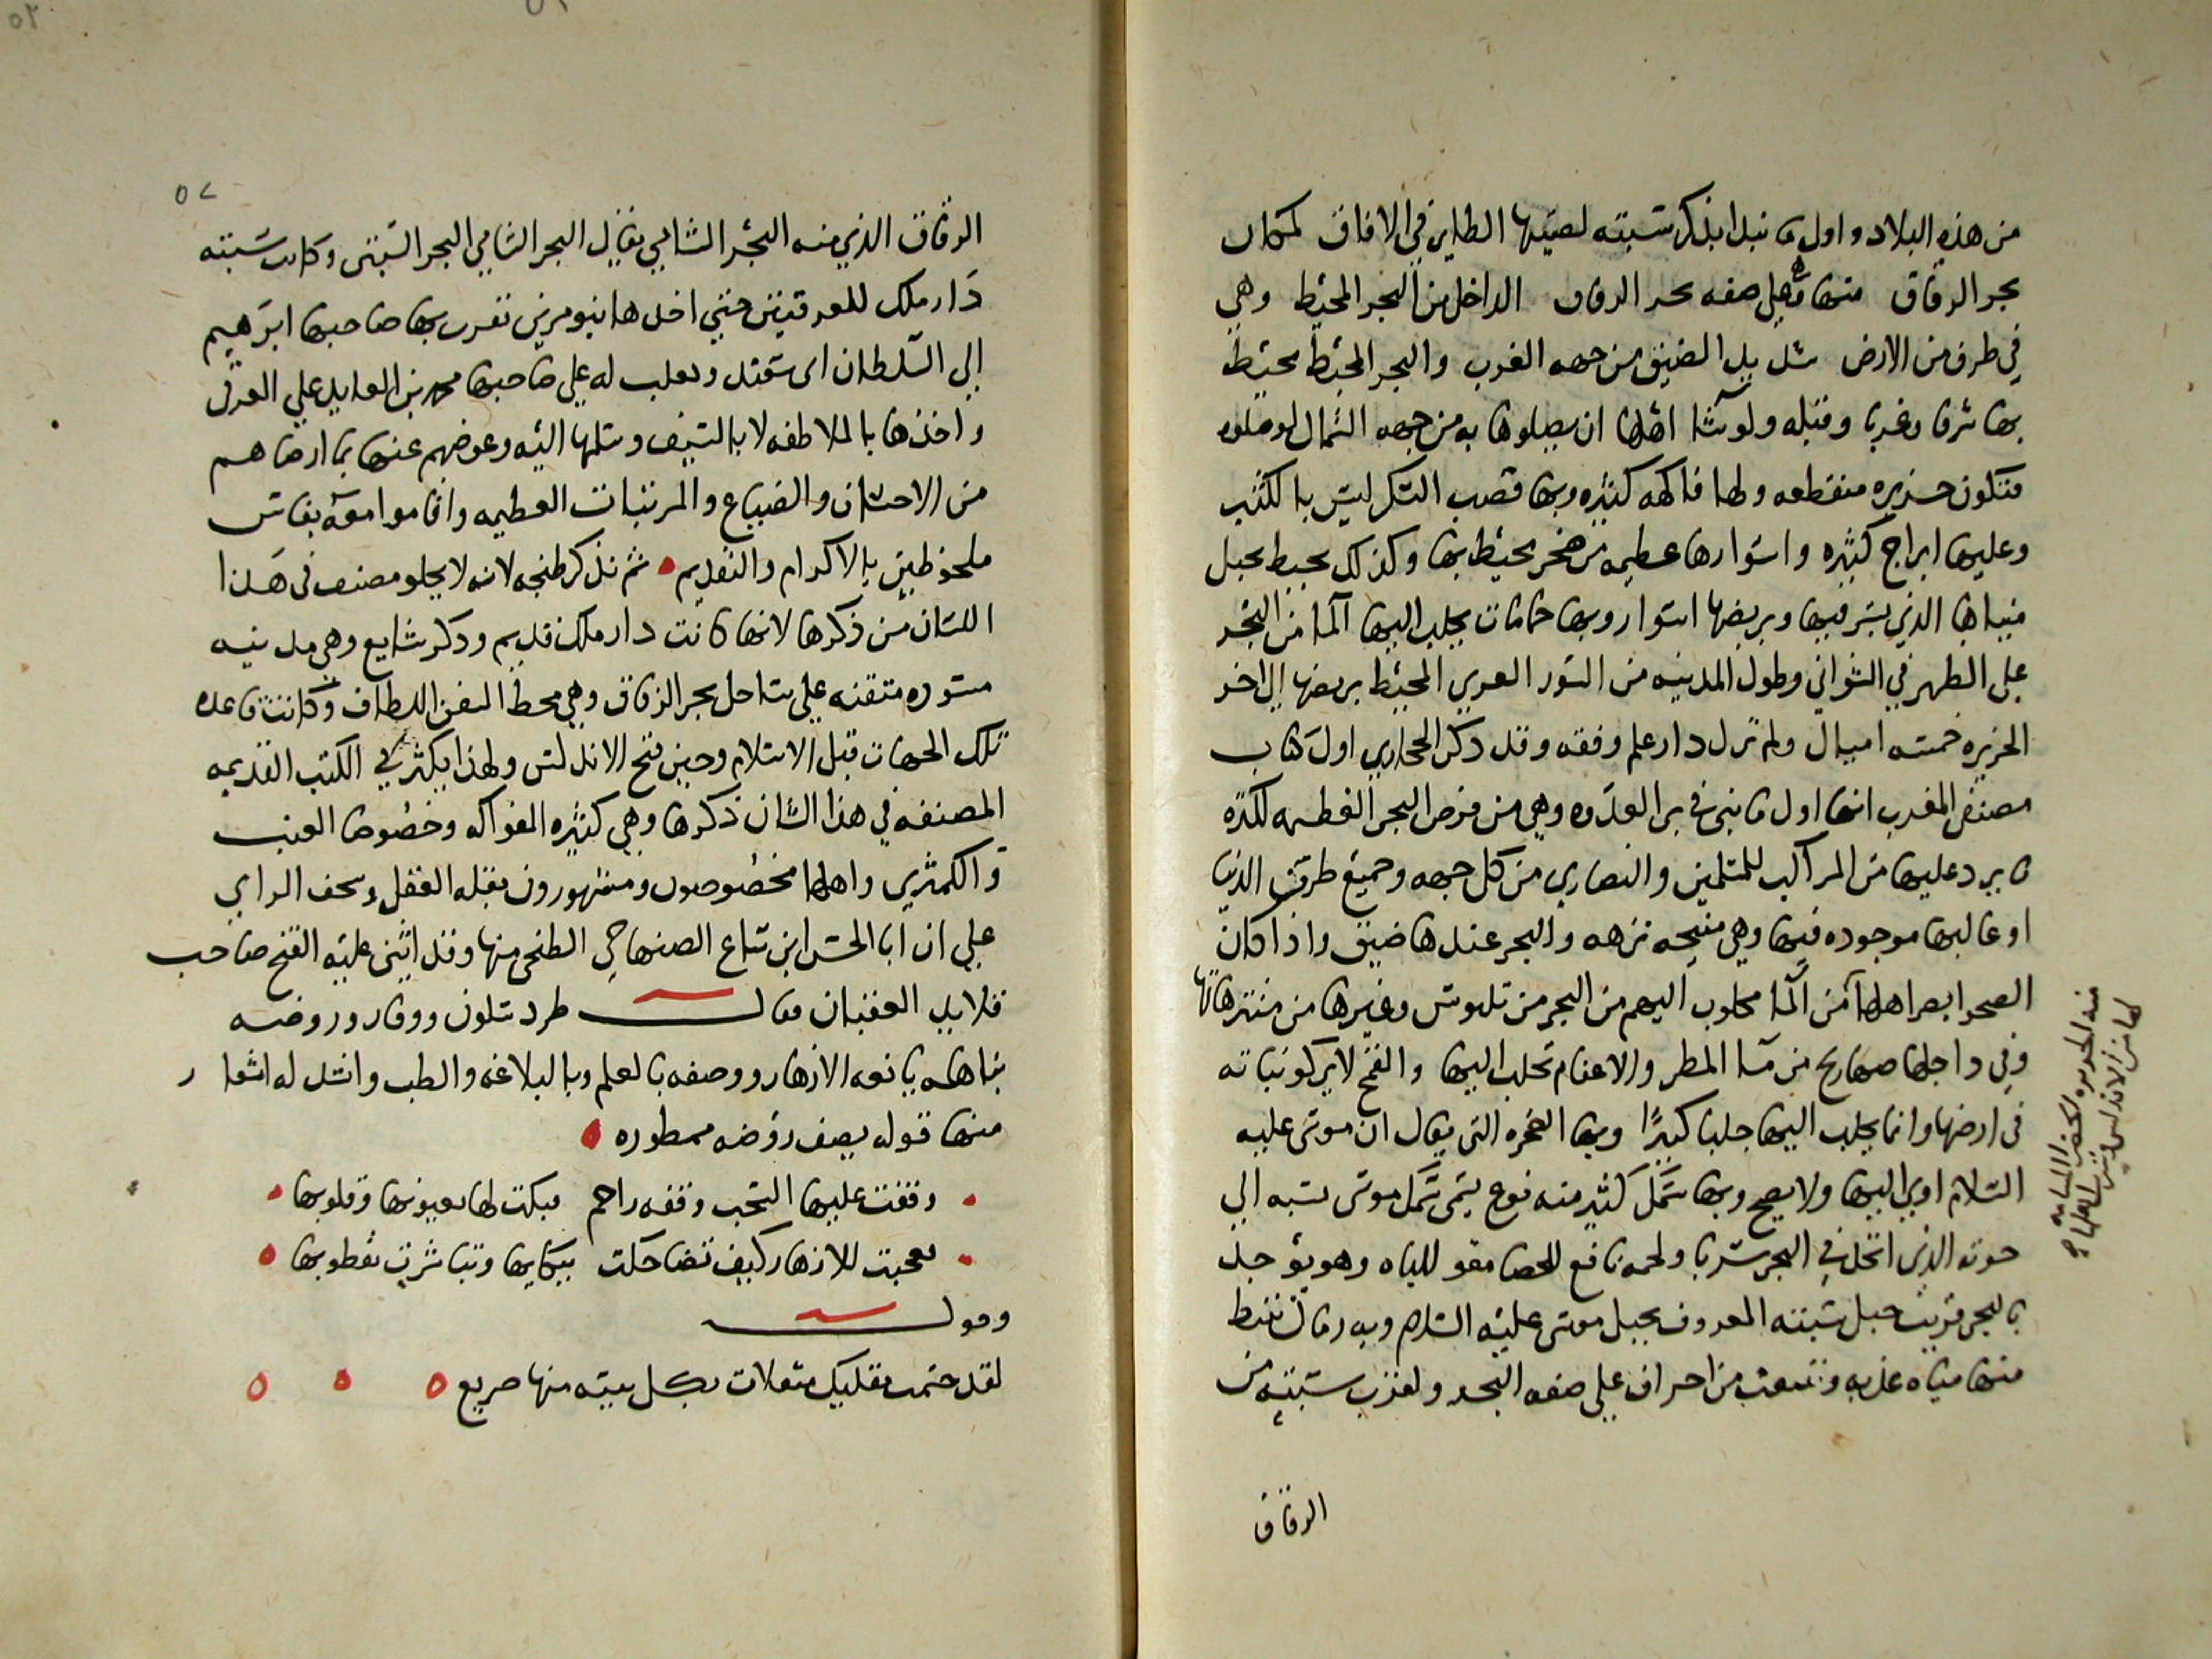 من هذه البلاد واول ما نبدا بذكر سبته لصيتها الطاير في الافاق لمكان
بحر الزقاق منها وهي على ضفه بحر الزقاق الداخل من البحر المحيط وهي
في طرف من الارض الضيق من جهه الغرب والبحر المحيط محيط
بها شرقا وغربا وقبله ولو شا اهلها ان يصلوها به من جهه الشمال لوصلوه
فتكون جزيره منقطعه ولها فاكهه كثيره وبها قصب السكر ليس بالكثير
وعليها ابراج كثيره واسوارها عظيمه من صخر محيط بها وكذلك محيط بجبل
ميناها الذي يشرفيها وبربضها اسوار وبها حمامات يجلب اليها الما من البحر
على الظهر في الشواني وطول المدينه من السور الغربي المحيط بربضها الى اخر
الجزيره خمسه اميال ولم تزل دار علم وفقه وقد ذكر الحجاري اول كتاب
مصنف المغرب انها اول ما بنى في بر العدوه وهي من فرض البحر العظيمه لكثره
ما يرد عليها من المراكب للمسلمين والنصاري من كل جهه وجميع طرف الدنيا
او غالبها موجوده فيها وهي مليحه نزهه والبحر عندها ضيق واذا كان
الصحو ابصر اهلها من الما مجلوب اليهم من البحر من بليونش وغيرها من منتزهاتها
وفي داخلها صهاريج من ما المطر والاغنام تجلب اليها والقمح لا يزكو نباته
في ارضها وانما يجلب اليها جلبا كبيرًا وبها الصخره التي يقال ان موسى عليه
السلام اوي اليها ولا يصح وبها سمك كثير منه نوع يسمى سمك موسى ينسبه الى
حوته الذي اتخذ في البحر سربا ولحمه نافع للحصا مقو للباه وهو يوجد
بالبحر قريب جبل سبته المعروف بجبل موسى عليه السلام وبه رمال ينبط
منها مياه عذبه وتنبعث من احراف على ضفه البحر ولقرب سبته من
الزقاق
هذه الجزيره الخضرا
لها من الاندلس
الزقاق الذي منه البحر الشامي يقال للبحر الشامي البحر السبتى وكانت سبته
دار ملك للعزفيين حتي اخذها بنو مرين تقرب بها صاحبها ابرهيم
الي السلطان ابى سعيد وتغلب له علي صاحبها محمد بن علي العزفي
واخذها بالملاطفه لا بالسيف وسلمها اليه وعوضهم عنها بما ارضاهم
من الاحسان والضياع والمرتبات العظيمه واقاموا معه بفاس
ملحوظين بالاكرام والتقديم ثم نذكر طنجه لانه لا يخلو مصنف في هذا
الشان من ذكرها لانها كانت دار ملك قديم وذكر شايع وهي مدينه
مسوره متقنه علي ساحل بحر الزقاق وهي محط السفن اللطاف وكانت قاعده
تلك الجهات قبل الاسلام وحين فتح الاندلس ولهذا يكثر في الكتب القديمه
المصنفه في هذا الشان ذكرها وهي كثيره الفواكه وخصوصا العنب
والكمثري واهلها مخصوصون ومشهورون بقله العقل وسخف الراي
علي ان ابا الحسن ابن بياع الصنهاجي الطنجي منها وقد اثنى عليه الفتح صاحب
قلايد العقيان فقال طرد سكون ووقار وروضه
نباهه يانعه الازهار ووصفه بالعلم وبالبلاغه والطب وانشد له اشعار
منها قوله يصف روضه ممطوره
وقفت عليها السحب وقفه راحم فبكت لها بعيونها وقلوبها
فعجبت للازهار كيف تضاحكت ببكايها وتباشرت بقطوبها
وقول
لقد حتمت بقلبك مقلات بكل بيته منها صريع